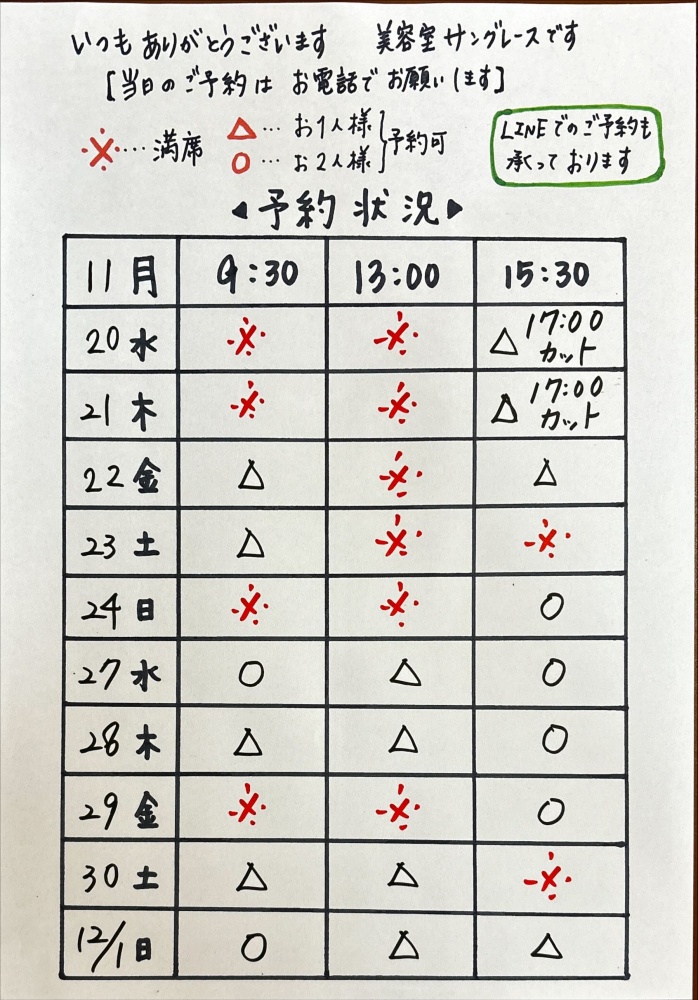 いつもありがとうございます 美容室サングレースです
[当日のご予約は お電話で お願いします]
※…満席
△…お1人様
○…お2人様
予約可
LINEでのご予約も
承っております
◀予約状況▶
11月 9:30 13:00 15:30
20水 ※ ※ △ 17:00 カット
21木 ※ ※ △ 17:00 カット
22金 △ ※ △
23土 △ ※ ※
24日 ※ ※ ○
27水 ○ △ ○
28木 △ △ ○
29金 ※ ※ ○
30土 △ △ ※
12/1日 ○ △ △